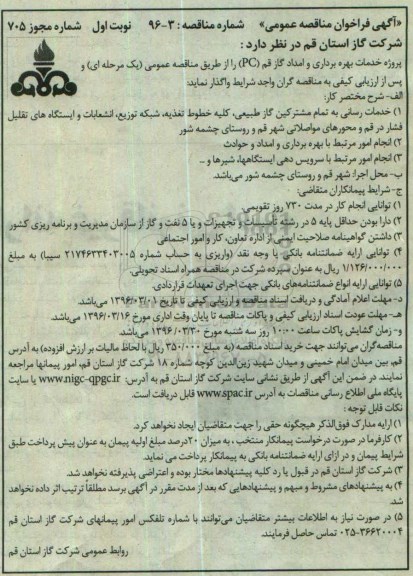 «آگهی فراخوان مناقصه عمومی» شماره مناقصه : ۳-۹۶ نوبت اول شماره مجوز ۷۰۵
شرکت گاز استان قم در نظر دارد :
پروژه خدمات بهره برداری و امداد گاز قم (PC) را از طریق مناقصه عمومی (یک مرحله ای) و
پس از ارزیابی کیفی به مناقصه گران واجد شرایط واگذار نماید:
الف- شرح مختصر کار:
۱) خدمات رسانی به تمام مشترکین گاز طبیعی، کلیه خطوط تغذیه، شبکه توزیع، انشعابات و ایستگاه های تقلیل
فشار در قم و محورهای مواصلاتی شهر قم و روستای چشمه شور
۲) انجام امور مرتبط با بهره برداری و امداد و حوادث
۳) انجام امور مرتبط با سرویس دهی ایستگاهها، شیرها و ...
ب- محل اجرا: شهر قم و روستای چشمه شور می‌باشد.
ج- شرایط پیمانکاران متقاضی:
۱) توانایی انجام کار در مدت ۷۳۰ روز تقویمی.
۲) دارا بودن حداقل پایه ۵ در رشته تأسیسات و تجهیزات و یا ۵ نفت و گاز از سازمان مدیریت و برنامه ریزی کشور
۳) داشتن گواهینامه صلاحیت ایمنی از اداره تعاون، کار و امور اجتماعی
۴) توانایی ارایه ضمانتنامه بانکی یا وجه نقد (واریزی به حساب شماره ۲۱۷۴۶۳۳۴۰۳۰۰۵ سیبا) به مبلغ
۱/۱۲۶/۰۰۰/۰۰۰ ریال به عنوان سپرده شرکت در مناقصه همراه اسناد تحویلی.
۵) توانایی ارایه انواع ضمانتنامه‌های بانکی جهت اجرای تعهدات قراردادی.
د- مهلت اعلام آمادگی و دریافت اسناد مناقصه و ارزیابی کیفی تا تاریخ ۱۳۹۶/۰۳/۰۱ می‌باشد.
هـ- مهلت عودت اسناد ارزیابی کیفی و پاکات مناقصه تا پایان وقت اداری مورخ ۱۳۹۶/۰۳/۱۶ می‌باشد.
و- زمان گشایش پاکات ساعت ۱۰:۰۰ روز سه شنبه مورخ ۱۳۹۶/۰۳/۳۰ می‌باشد.
مناقصه‌گران می‌توانند جهت خرید اسناد مناقصه (به مبلغ ۳۵۰/۰۰۰ ریال با لحاظ مالیات بر ارزش افزوده) به آدرس
قم، بین میدان امام خمینی و میدان شهید زین‌الدین کوچه شماره ۱۸ شرکت گاز استان قم، امور پیمانها مراجعه
نمایند. در ضمن این آگهی از طریق نشانی سایت شرکت گاز استان قم به آدرس: www.nigc-qpgc.ir یا سایت
پایگاه ملی اطلاع رسانی مناقصات به آدرس www.spac.ir قابل دریافت است.
نکات قابل توجه :
۱) ارایه مدارک فوق‌الذکر هیچگونه حقی را جهت متقاضیان ایجاد نخواهد کرد.
۲) کارفرما در صورت درخواست پیمانکار منتخب ، به میزان ۲۰درصد مبلغ اولیه پیمان به عنوان پیش پرداخت طبق
شرایط پیمان و در ازای ارایه ضمانتنامه بانکی به پیمانکار پرداخت می نماید.
۳) شرکت گاز استان قم در قبول یا رد کلیه پیشنهادها مختار بوده و اعتراضی پذیرفته نخواهد شد.
۴) به پیشنهادهای مشروط و مبهم و پیشنهادهایی که بعد از مدت مقرر در آگهی برسد مطلقاً ترتیب اثر داده نخواهد
شد.
۵) در صورت نیاز به اطلاعات بیشتر متقاضیان می‌توانند با شماره تلفکس امور پیمانهای شرکت گاز استان قم
۰۲۵-۳۶۶۲۰۰۰۴ تماس حاصل فرمایند.
روابط عمومی شرکت گاز استان قم